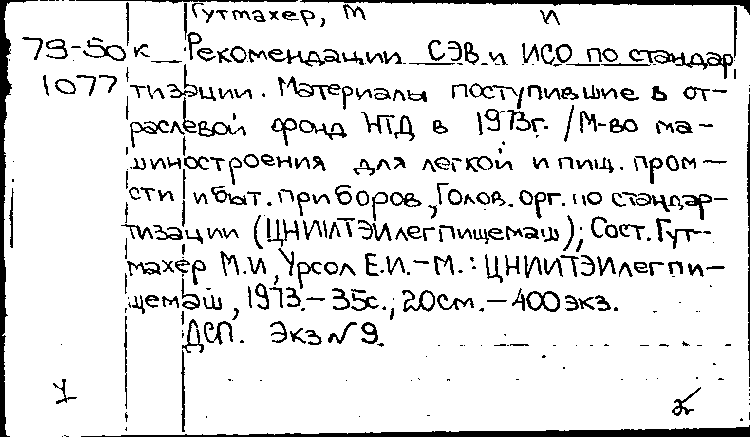 Гутмахер, М И
79-50к Рекомендации СЭВ и ИСО по стандар
1077 тизации. Материалы поступившие в от-
раслевой фонд НТД в 1973г. /М-во ма-
шиностроения для легкой и пищ. пром-
сти и быт. приборов, Голов. орг. по стандар-
тизации (ЦНИИТЭИлегпищемаш); Сост. Гут-
махер М.И, Урсол Е.И.-М.: ЦНИИТЭИлегпи-
щемаш, 1973.-35с.; 20см.-400экз.
ДСП. Экз№9.